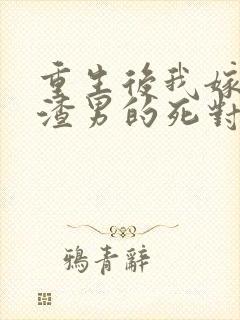 重生後我嫁
渣男的死對
鴉青辭